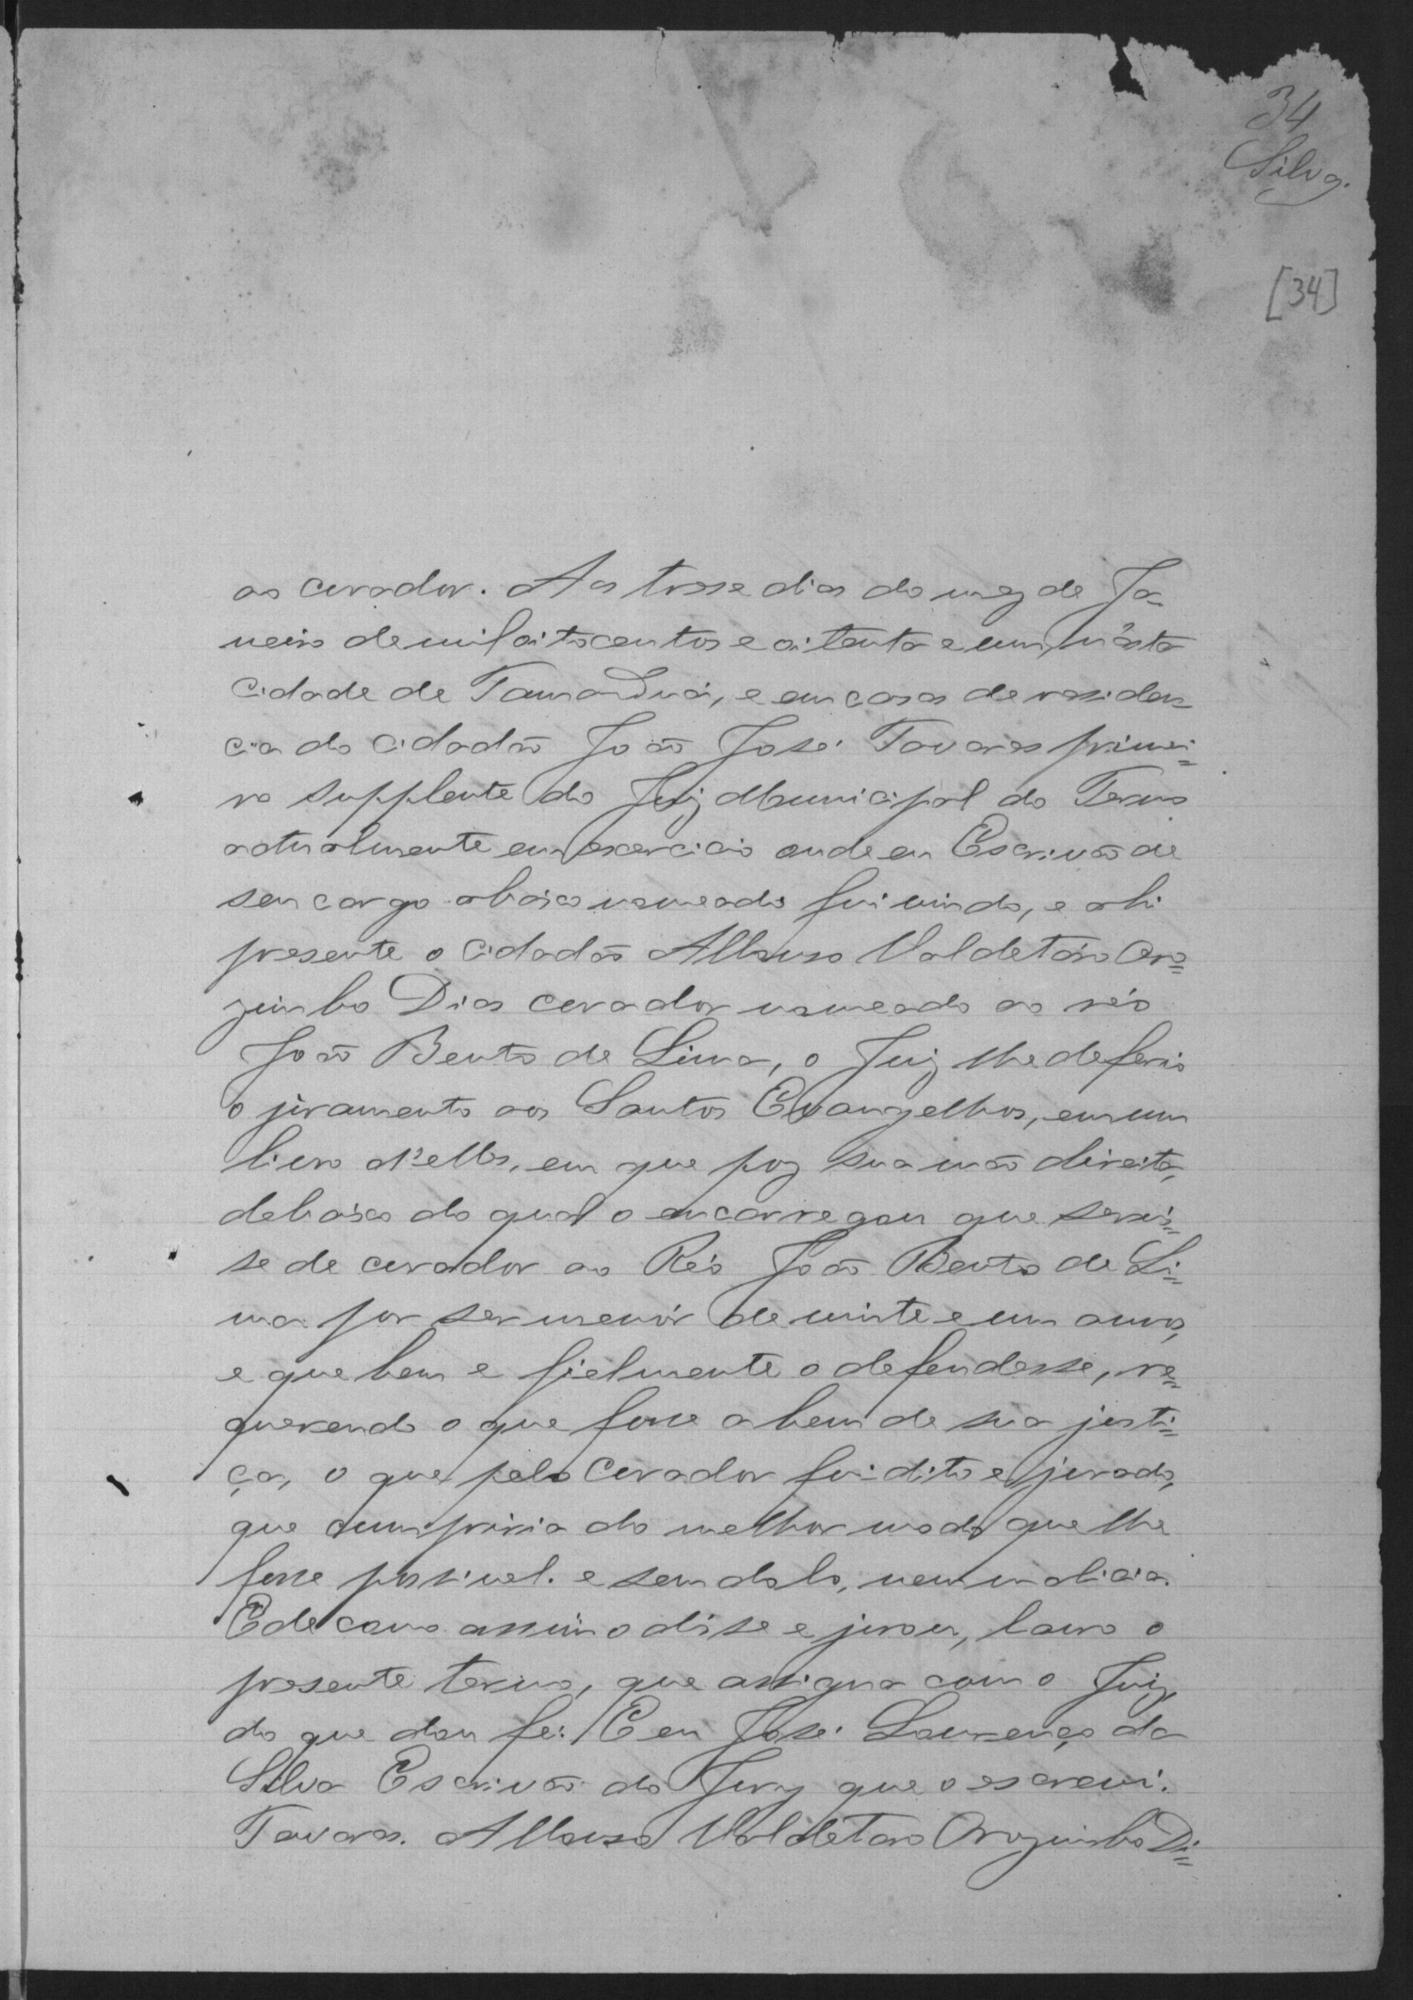 34
Silva.
[34]
ao curador. Aos trese dias do mez de Ja=
neiro de mil oitocentos e oitenta e um, n'ésta
Cidade de Tamanduá, e em casa de residen=
cia do cidadão João José Tavares primei=
ro supplente do Juiz Municipal do Termo
actualmente em exercicio onde eu Escrivão de
seu cargo abaixo nomeado fui vindo, e ahi
presente o cidadão Affonso Valdetáro Oro=
zimbo Dias curador nomeado ao réo
João Bento de Lima, o Juiz lhe deferio
o juramento aos Santos Evangelhos, em um
livro d'elles, em que poz sua mão direita,
debaixo do qual o encarregou que servis=
se de curador ao Réo João Bento de Li=
ma por ser menór de vinte e um annos,
e que bem e fielmente o defendesse, re=
querendo o que fosse a bem de sua justi=
ça, o que pelo Curador foi dito e jurado,
que cumpriria do melhor modo que lhe
fosse possivel. e sem dolo, nem malicia.
E de como assim o disse e jurou, lavro o
presente termo, que assigna com o Juiz,
do que dou fé. E eu José Lourenço da
Silva Escrivão do Jury que o escrevi.
Tavares. Affonso Valdetaro Orozimbo Di=